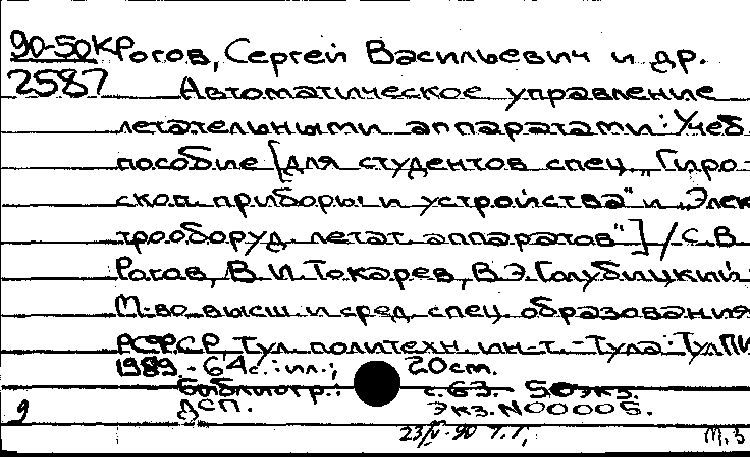 90-50К Рогов, Сергей Васильевич и др.
2587 Автоматическое управление
летательными аппаратами: Учеб.
пособие [для студентов спец. „Гиро-
скоп. приборы и устройства" и „Элек-
трооборуд. летат. аппаратов"] / С.В.
Рогов, В.И. Токарев, В.Э. Голубицкий
М-во высш. и сред. спец. образования
РСФСР, Тул. политехн. ин-т. - Тула: ТулПИ
1989. - 64с.: ил.; 20см.
Библиогр.: с. 63. 50экз.
9 ДСП. Экз. N00005.
23/IV-90 т.г. М.З